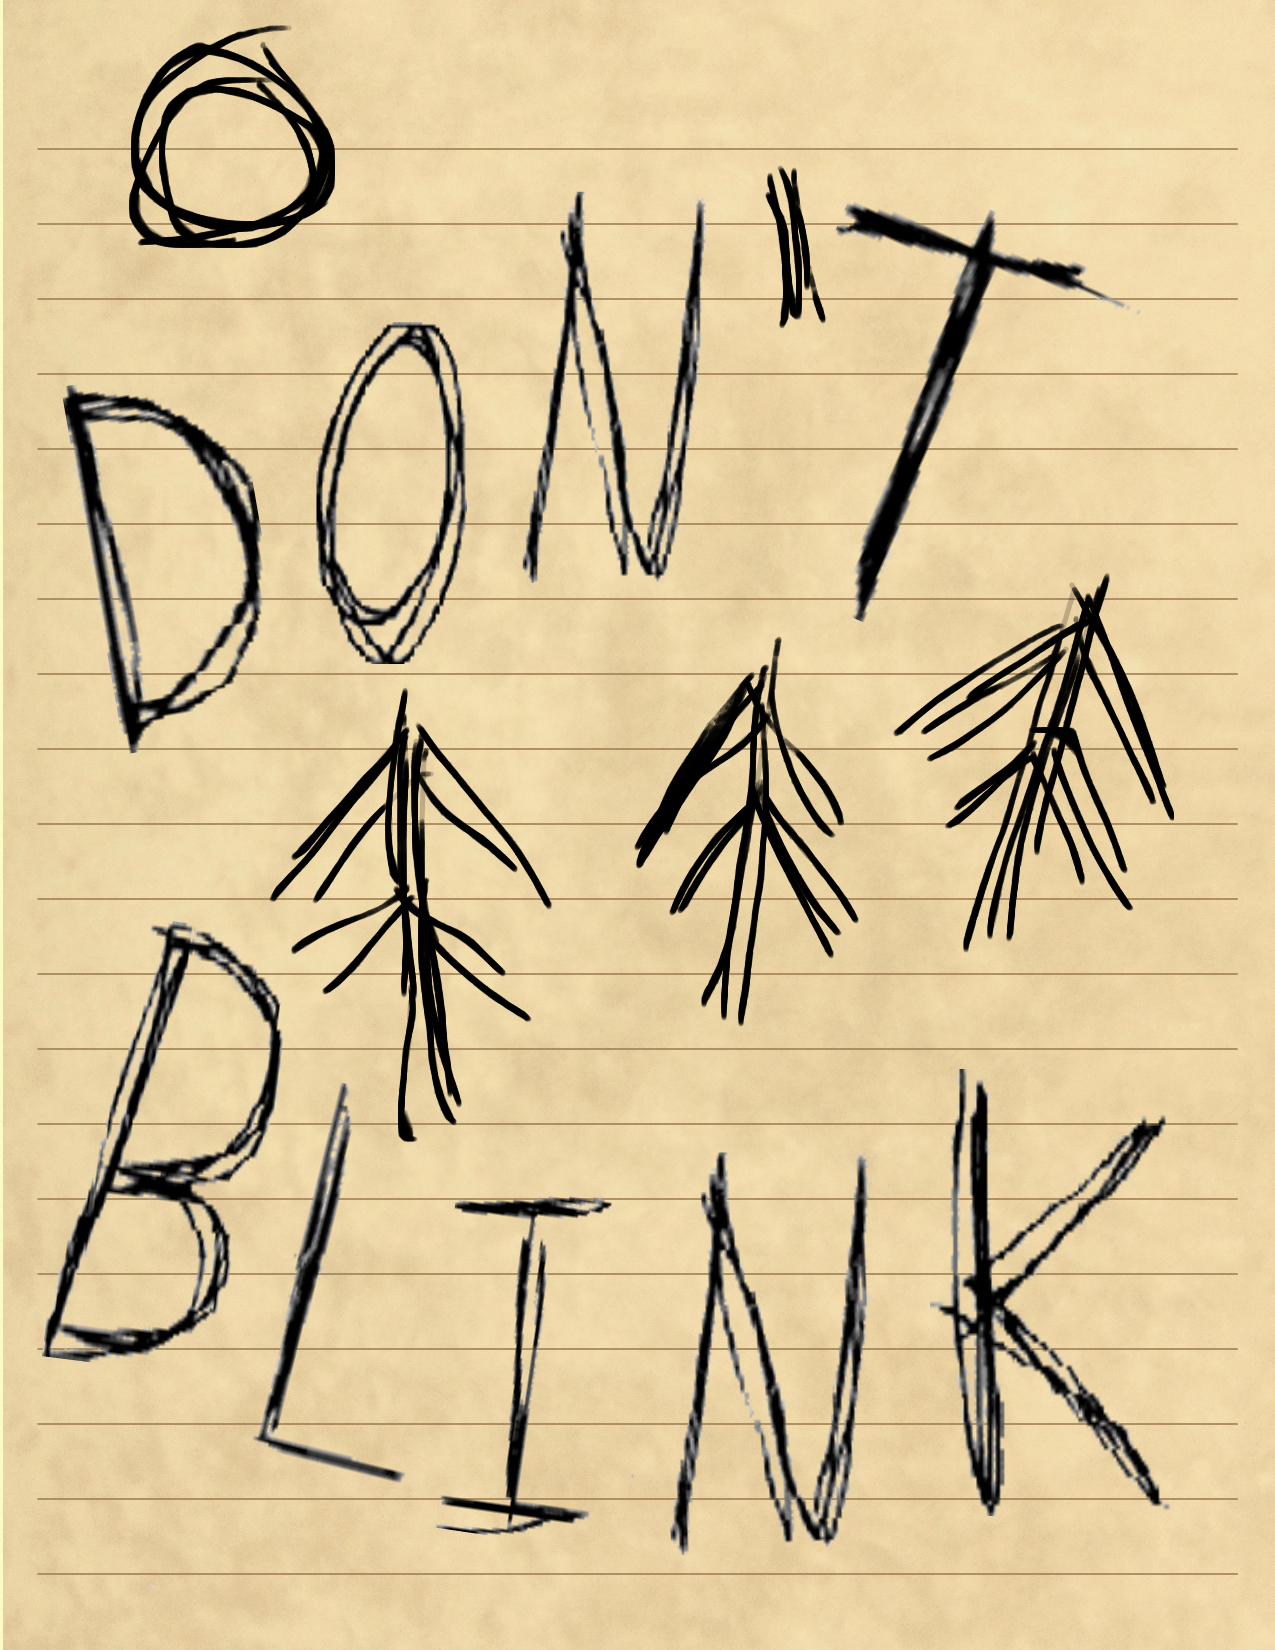 DON'T
BLINK